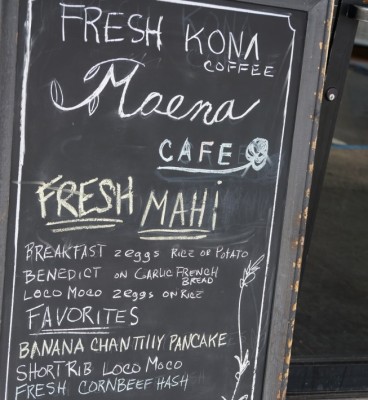 FRESH KONA
COFFEE
Moena
CAFE
FRESH MAHI
BREAKFAST 2eggs RICE OR POTATO
BENEDICT ON GARLIC FRENCH
BREAD
LOCO MOCO 2eggs ON RICE
FAVORITES
BANANA CHANTILLY PANCAKE
SHORT RIB LOCO MOCO
FRESH CORNBEEF HASH